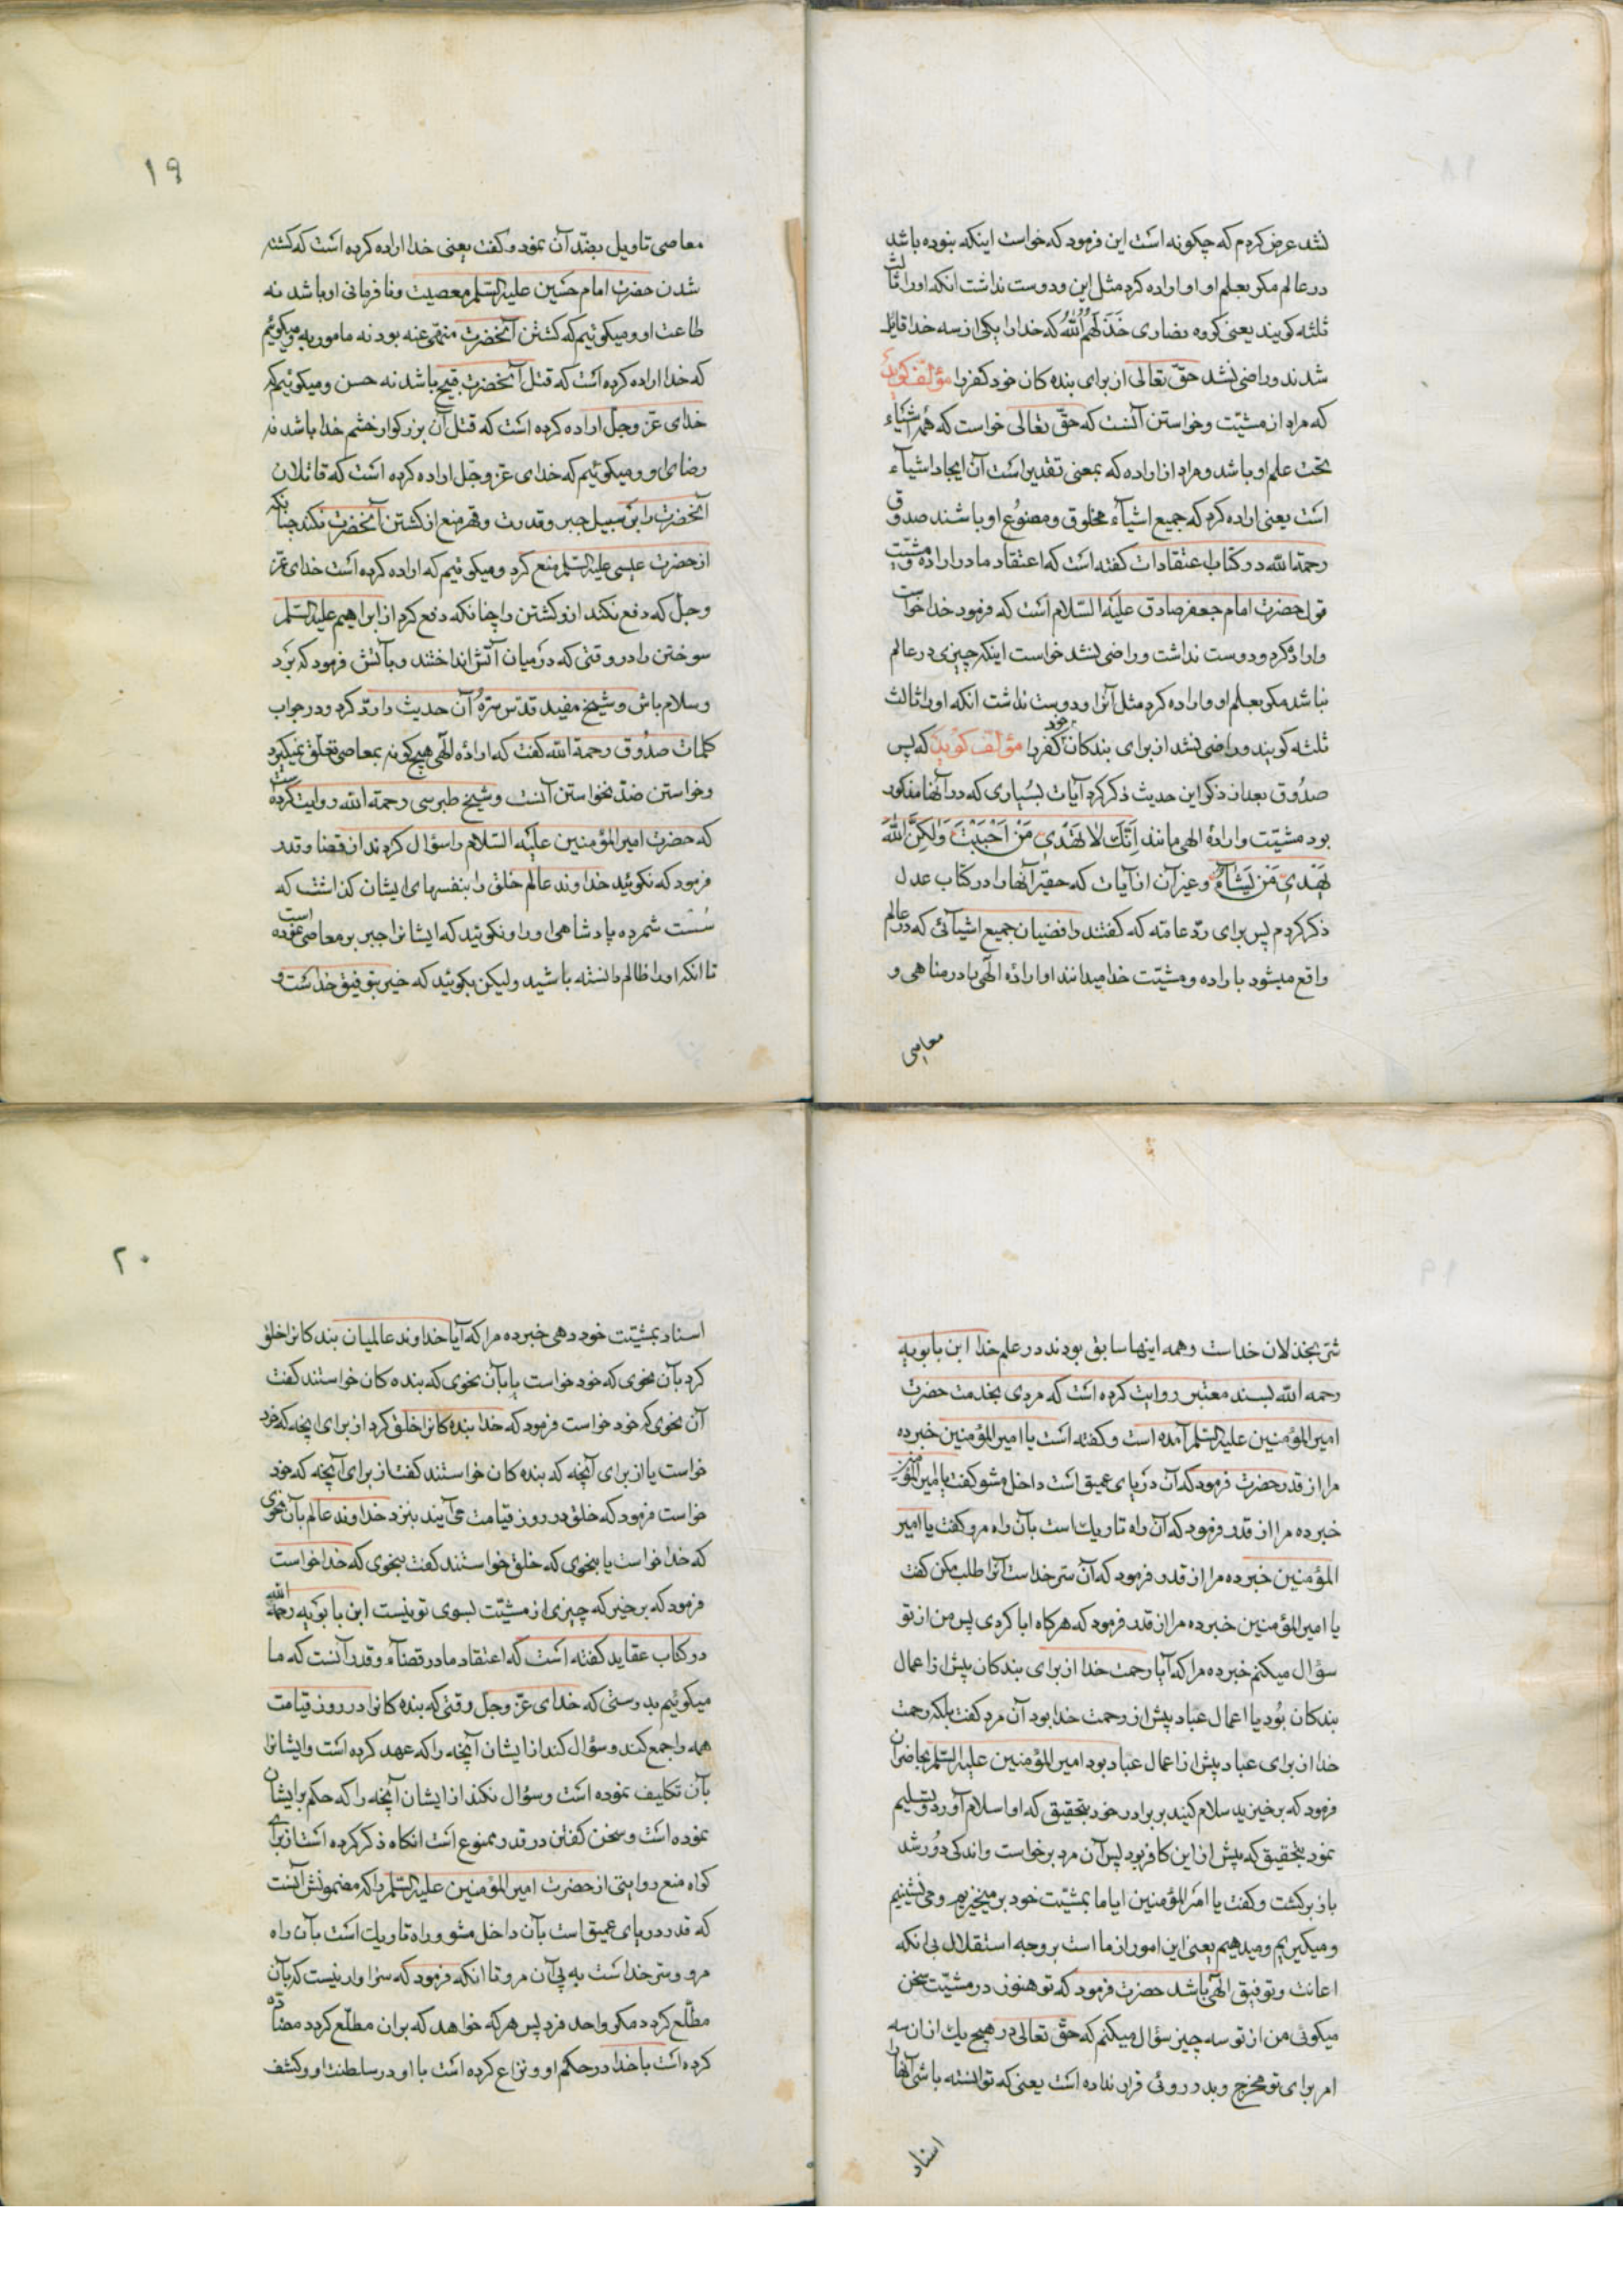 نشد عرض کردم که چگونه است این فرمود که خواست اینکه بنوده باشد
در عالم مکر بعلم او و اراده کرد مثل این و دوست نداشت انکه او را ثالث
ثلثه کویند یعنی کروه نصاری خَذَلَهُمُ اللهُ که خدا را یکی از سه خدا قایل
شدند و راضی نشد حقّ تعالی از برای بنده کان خود کفر را مؤلف کوید
که مراد از مشیّت و خواستن آنست که حقّ تعالی خواست که همه اشیاء
تحت علم او باشد و مراد از اراده که بمعنی تقدیر است آن ایجاد اشیآء
است یعنی اراده کرد که جمیع اشیآء مخلوق و مصنوُع او باشند صدوق
رحمة الله در کتاب اعتقادات کفته است که اعتقاد ما در اراده و مشیّت
قول حضرت امام جعفر صادق علیه السّلام است که فرمود خدا خواست
و اراده کرد و دوست نداشت و راضی نشد خواست اینکه چیزی در عالم
نباشد مکر بعلم او و اراده کرد مثل آنرا و دوست نداشت انکه او را ثالث
ثلثه کویند و راضی نشد از برای بندکان خود کفر را مؤلف کوید که پس
صدُوق بعد از ذکر این حدیث ذکر کرد آیات بسیاری که در آنها مذکور
بود مشیّت و ارادهٔ الهی مانند اِنَّكَ لا تَهْدي مَنْ اَحْبَبْتَ وَلٰكِنَّ اللهَ
يَهْدي مَنْ يَشآءُ و غیر آن از آیات که حقیر آنها را در کتاب عدل
ذکر کردم پس برای ردّ عامّه که کفتند رافضیان جمیع اشیآئی که در عالم
واقع میشود باراده و مشیّت خدا میدانند او ارادهٔ الهی را در مناهی و
معاصی
۱۹
معاصی تاویل بضدّ آن نمود و کفت یعنی خدا اراده کرده است که کشته
شدن حضرت امام حسین علیه السّلم معصیت و نافرمانی او باشد نه
طاعت او و میکوئیم که کشتن آنحضرت منهیّ عنه بود نه مامور به و میکوئیم
که خدا اراده کرده است که قتل آنحضرت قبیح باشد نه حسن و میکوئیم که
خدای عزّ وجلّ اراده کرده است که قتل آن بزرکوار خشم خدا باشد نه
رضای او و میکوئیم که خدای عزّ وجلّ اراده کرده است که قاتلان
آنحضرت را بر سبیل جبر و قدرت و قهر منع از کشتن آنحضرت نکند چنانکه
از حضرت عیسی علیه السّلم منع کرد و میکوئیم که اراده کرده است خدای عزّ
وجلّ که دفع نکند ازو کشتن را چنانکه دفع کرد از ابراهیم علیه السّلم
سوختن را در وقتی که در میان آتش انداختند و بآتش فرمود که بَرْد
و سلام باش و شیخ مفید قدّس سرّهُ آن حدیث را ردّ کرد و در جواب
کلمات صدُوق رحمة الله کفت که ارادهٔ الهی هیچ کونه بمعاصی تعلّق نمیکیرد
و خواستن ضدّ نخواستن آنست و شیخ طبرسی رحمة الله روایت کرده است
که حضرت امیر المؤمنین علیه السّلام را سؤال کردند از قضا و قدر
فرمود که نکوئید خداوند عالم خلق را بنفسهای ایشان کذاشت که
سُست شمرده پادشاهی او را و نکوئید که ایشانرا جبر بر معاصی نموده است
تا انکه او را ظالم دانسته باشید و لیکن بکوئید که خیر بتوفیق خداست و
شرّ بخذلان خداست و همه اینها سابق بودند در علم خدا ابن بابویه
رحمه الله بسند معتبر روایت کرده است که مردی بخدمت حضرت
امیر المؤمنین علیه السّلم آمده است و کفته است یا امیر المؤمنین خبر ده
مرا از قدر حضرت فرمود که آن دریای عمیق است داخل مشو کفت یا امیر المؤمنین
خبر ده مرا از قدر فرمود که آن راه تاریک است بآن راه مرو کفت یا امیر
المؤمنین خبر ده مرا از قدر فرمود که آن سرّ خداست آنرا طلب مکن کفت
یا امیر المؤمنین خبر ده مرا از قدر فرمود که هرکاه ابا کردی پس من از تو
سؤال میکنم خبر ده مرا که آیا رحمت خدا از برای بندکان پیش از اعمال
بندکان بُود یا اعمال عباد پیش از رحمت خدا بود آن مرد کفت بلکه رحمت
خدا از برای عباد پیش از اعمال عباد بود امیر المؤمنین علیه السّلم بحاضران
فرمود که برخیزید سلام کنید بر برادر خود بتحقیق که او اسلام آورد و تسلیم
نمود بتحقیق که پیش از این کافر بود پس آن مرد برخواست و اندکی دوُر شد
باز برکشت و کفت یا امیر المؤمنین ایا ما بمشیّت خود بر میخیزیم و می نشینیم
و میکیریم و میدهیم یعنی این امور از ما است بر وجه استقلال بی انکه
اعانت و توفیق الهی باشد حضرت فرمود که تو هنوز در مشیّت سخن
میکوئی من از تو سه چیز سؤال میکنم که حقّ تعالی در هیچ یک از ان سه
امر برای تو مخرج و بدر روئی قرار نداده است یعنی که توانسته باشی آنها را
اسناد
۲۰
اسناد بمشیّت خود دهی خبر ده مرا که آیا خداوند عالمیان بندکانرا خلق
کرد بآن نحوی که خود خواست یا بآن نحوی که بنده کان خواستند کفت
آن نحوی که خود خواست فرمود که خدا بنده کانرا خلق کرد از برای انچه که خود
خواست یا از برای آنچه که بنده کان خواستند کفت از برای آنچه که خود
خواست فرمود که خلق در روز قیامت می آیند بنزد خداوند عالم بآن نحوی
که خدا خواست یا بنحوی که خلق خواستند کفت بنحوی که خدا خواست
فرمود که برخیز که چیزی از مشیّت بسوی تو نیست ابن بابوَیه رحمة الله
در کتاب عقاید کفته است که اعتقاد ما در قضآء و قدر آنست که ما
میکوئیم بدرستی که خدای عزّ وجلّ وقتی که بنده کانرا در روز قیامت
همه را جمع کند و سؤال کند از ایشان آنچه را که عهد کرده است و ایشانرا
بآن تکلیف نموده است و سؤال نکند از ایشان آنچه را که حکم بر ایشان
نموده است و سخن کفتن در قدر ممنوع است انکاه ذکر کرده است از برای
کواه منع روایتی از حضرت امیر المؤمنین علیه السّلم را که مضمونش آنست
که قدر دریای عمیق است بآن داخل مشو و راه تاریک است بآن راه
مرو و سرّ خداست به پی آن مرو تا انکه فرمود که سزاوار نیست که بآن
مطّلع کردد مکر واحد فرد پس هر که خواهد که بران مطّلع کردد مضادّه
کرده است با خدا در حکم او و نزاع کرده است با او در سلطنت او و کشف